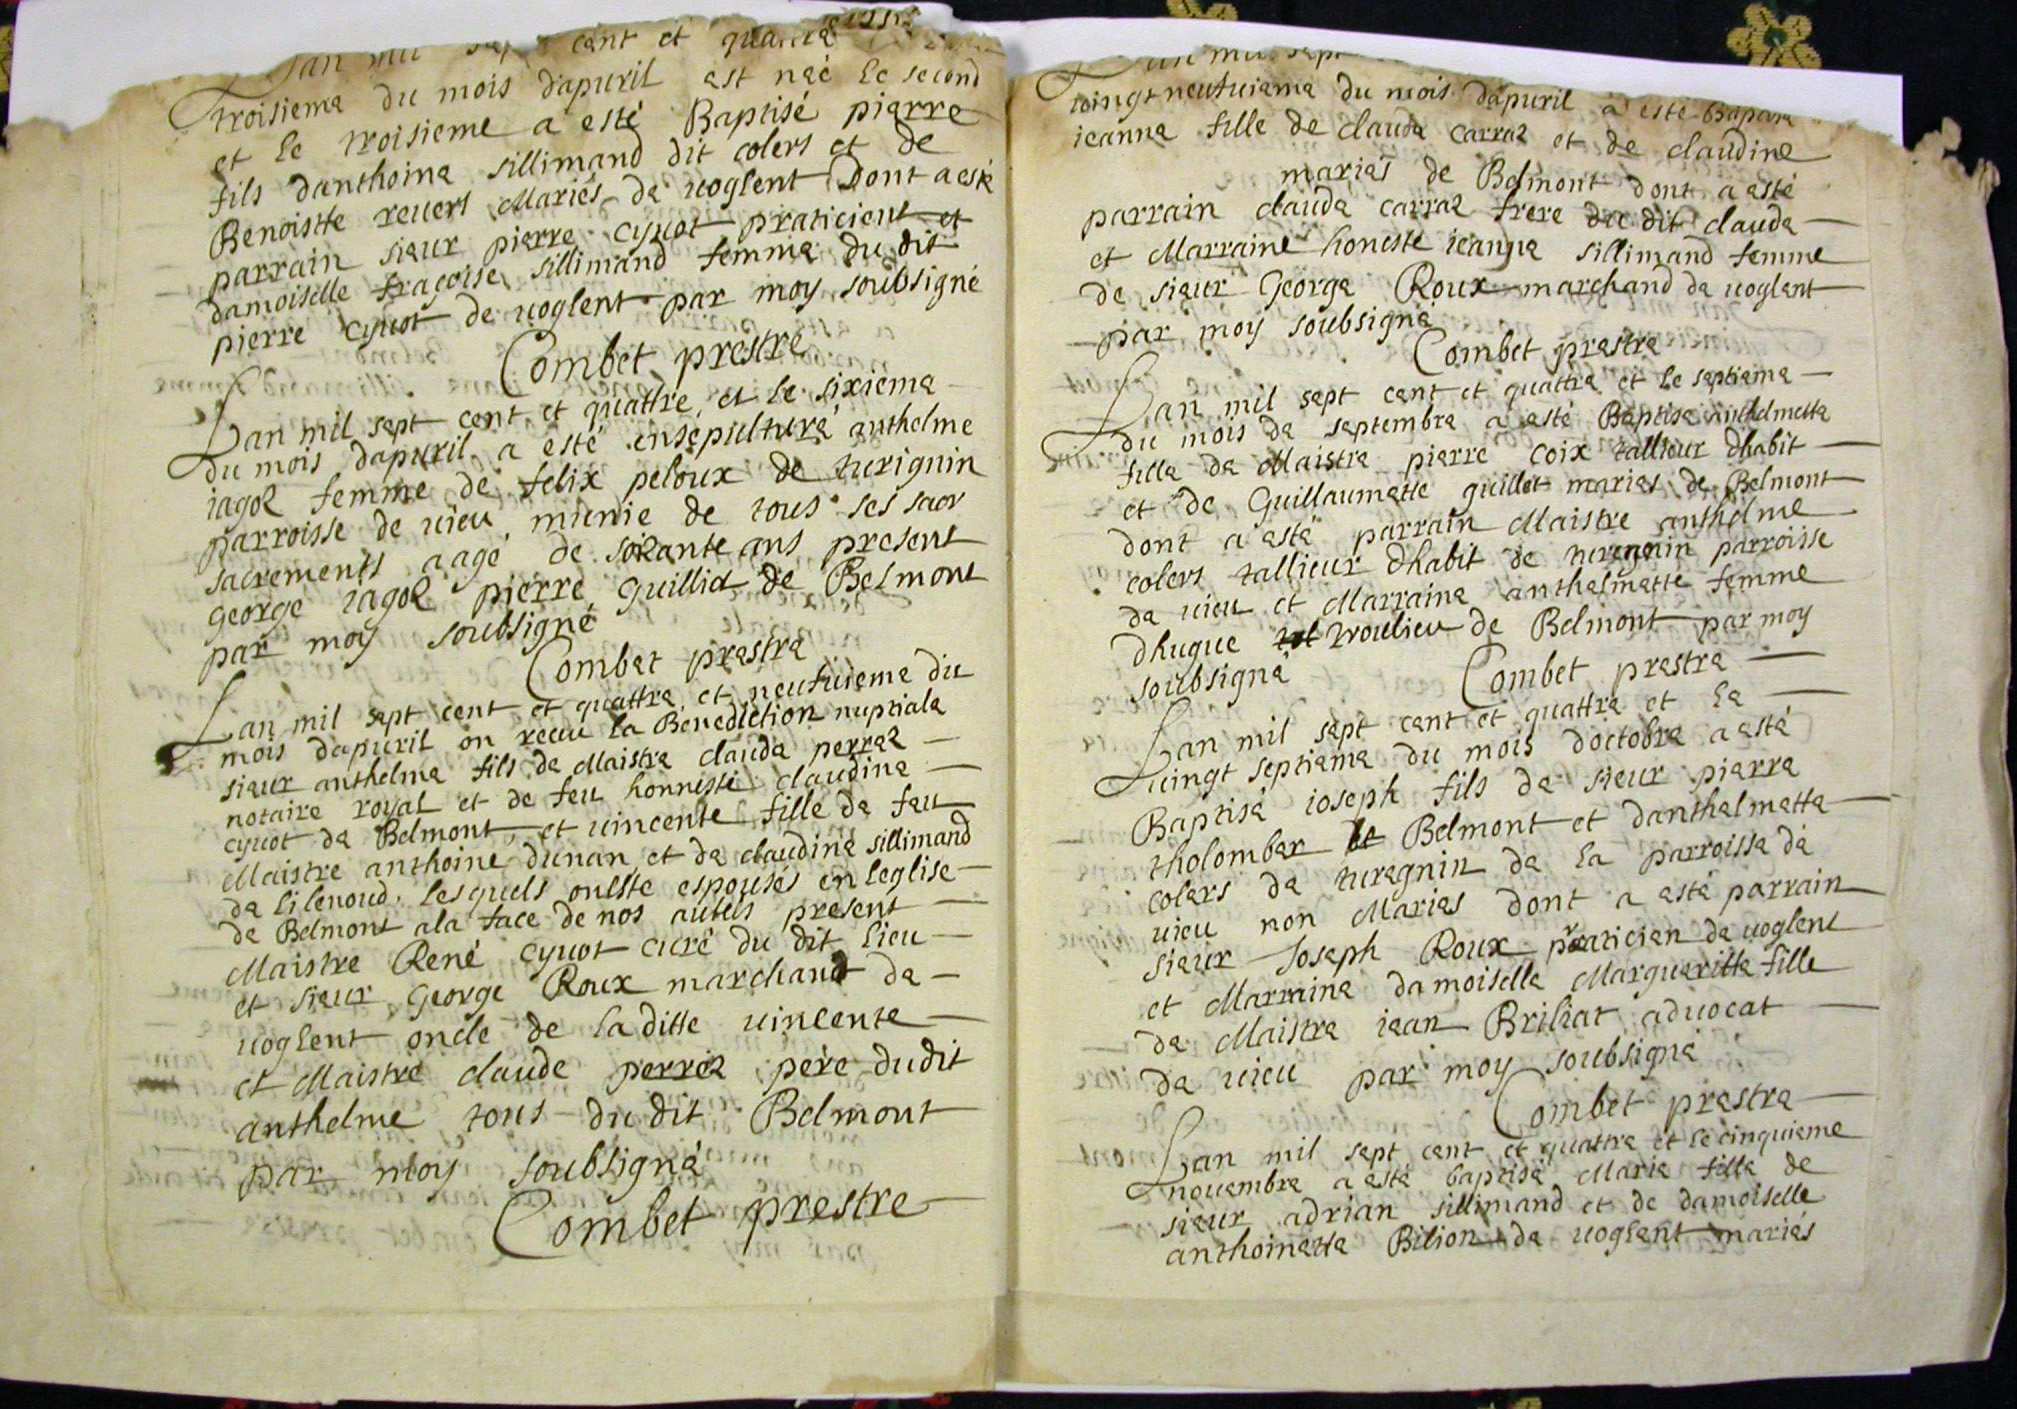 Lan mil sept cent et quattre
troisieme du mois dapuril est neé le second
et le troisieme a esté Baptisé pierre
fils danthoine sillimand dit colers et de
Benoistte reuers Mariés de uoglent Dont a esté
parrain sieur pierre cyuot praticient et
damoiselle fraçoise sillimand femme du dit
pierre cyuot de uoglent par moy soubsigné
Combet prestre
Lan mil sept cent et quattre et le sixieme
du mois dapuril a esté ensepulturé anthelme
iagoz femme de felix peloux de turignin
parroisse de uieu munie de tous ses sacr
sacrements aagé de soixante ans present
George iagoz pierre guilliet de Belmont
par moy soubsigné
Combet prestre
Lan mil sept cent et quattre et neufuieme du
mois dapuril on receu la Benediction nuptiale
sieur anthelme fils de Maistre claude perrez
notaire royal et de feu honneste claudine
cyuot de Belmont et uincente fille de feu
Maistre anthoine dunan et de claudine sillimand
de lilenoud lesquels onteste espousés en leglise
de Belmont ala face de nos autels present
Maistre René Cyuot curé du dit lieu
et sieur George Roux marchand de
uoglent oncle de laditte uincente
et Maistre claude perrez père dudit
anthelme tous du dit Belmont
par moy soubsigné
Combet prestre
Lan mil sept
uingt neufuieme du mois dapuril a esté bapt
ieanne fille de claude carraz et de claudine
mariés de Belmont dont a esté
parrain claude carraz frere du dit claude
et Marraine honeste ieanne sillimand femme
de sieur George Roux marchand de uoglent
par moy soubsigné
Combet prestre
Lan mil sept cent et quattre et le septieme
du mois de septembre a esté Baptise anthelmette
fille de Maistre pierre coix tallieur dhabit
et de Guillaumette guillet mariés de Belmont
dont a esté parrain Maistre anthelme
colers tallieur dhabit de turegnin parroisse
de uieu et Marraine anthelmette femme
dhugue troulieu de Belmont par moy
soubsigné
Combet prestre
Lan mil sept cent et quattre et le
uingt septieme du mois doctobre a esté
Baptisé ioseph fils de sieur pierre
tholomber Belmont et danthelmette
colers de turegnin de la parroisse de
uieu non Mariés dont a esté parrain
sieur Joseph Roux praticien de uoglent
et Marraine damoiselle Margueritte fille
de Maistre iean Briliat aduocat
de uieu par moy soubsigné
Combet prestre
Lan mil sept cent et quattre et le cinquieme
nouembre a esté baptisé Marie fille de
sieur adrian sillimand et de damoiselle
anthoinette Bilion de uoglent mariés